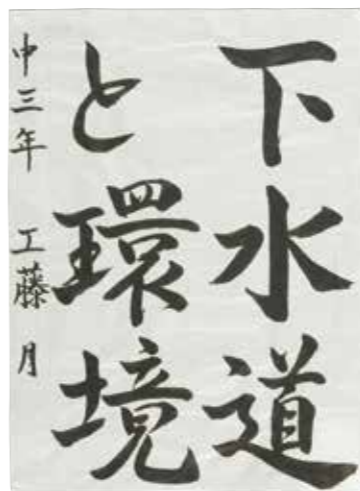 下水道
と環境
中三年 工藤 月